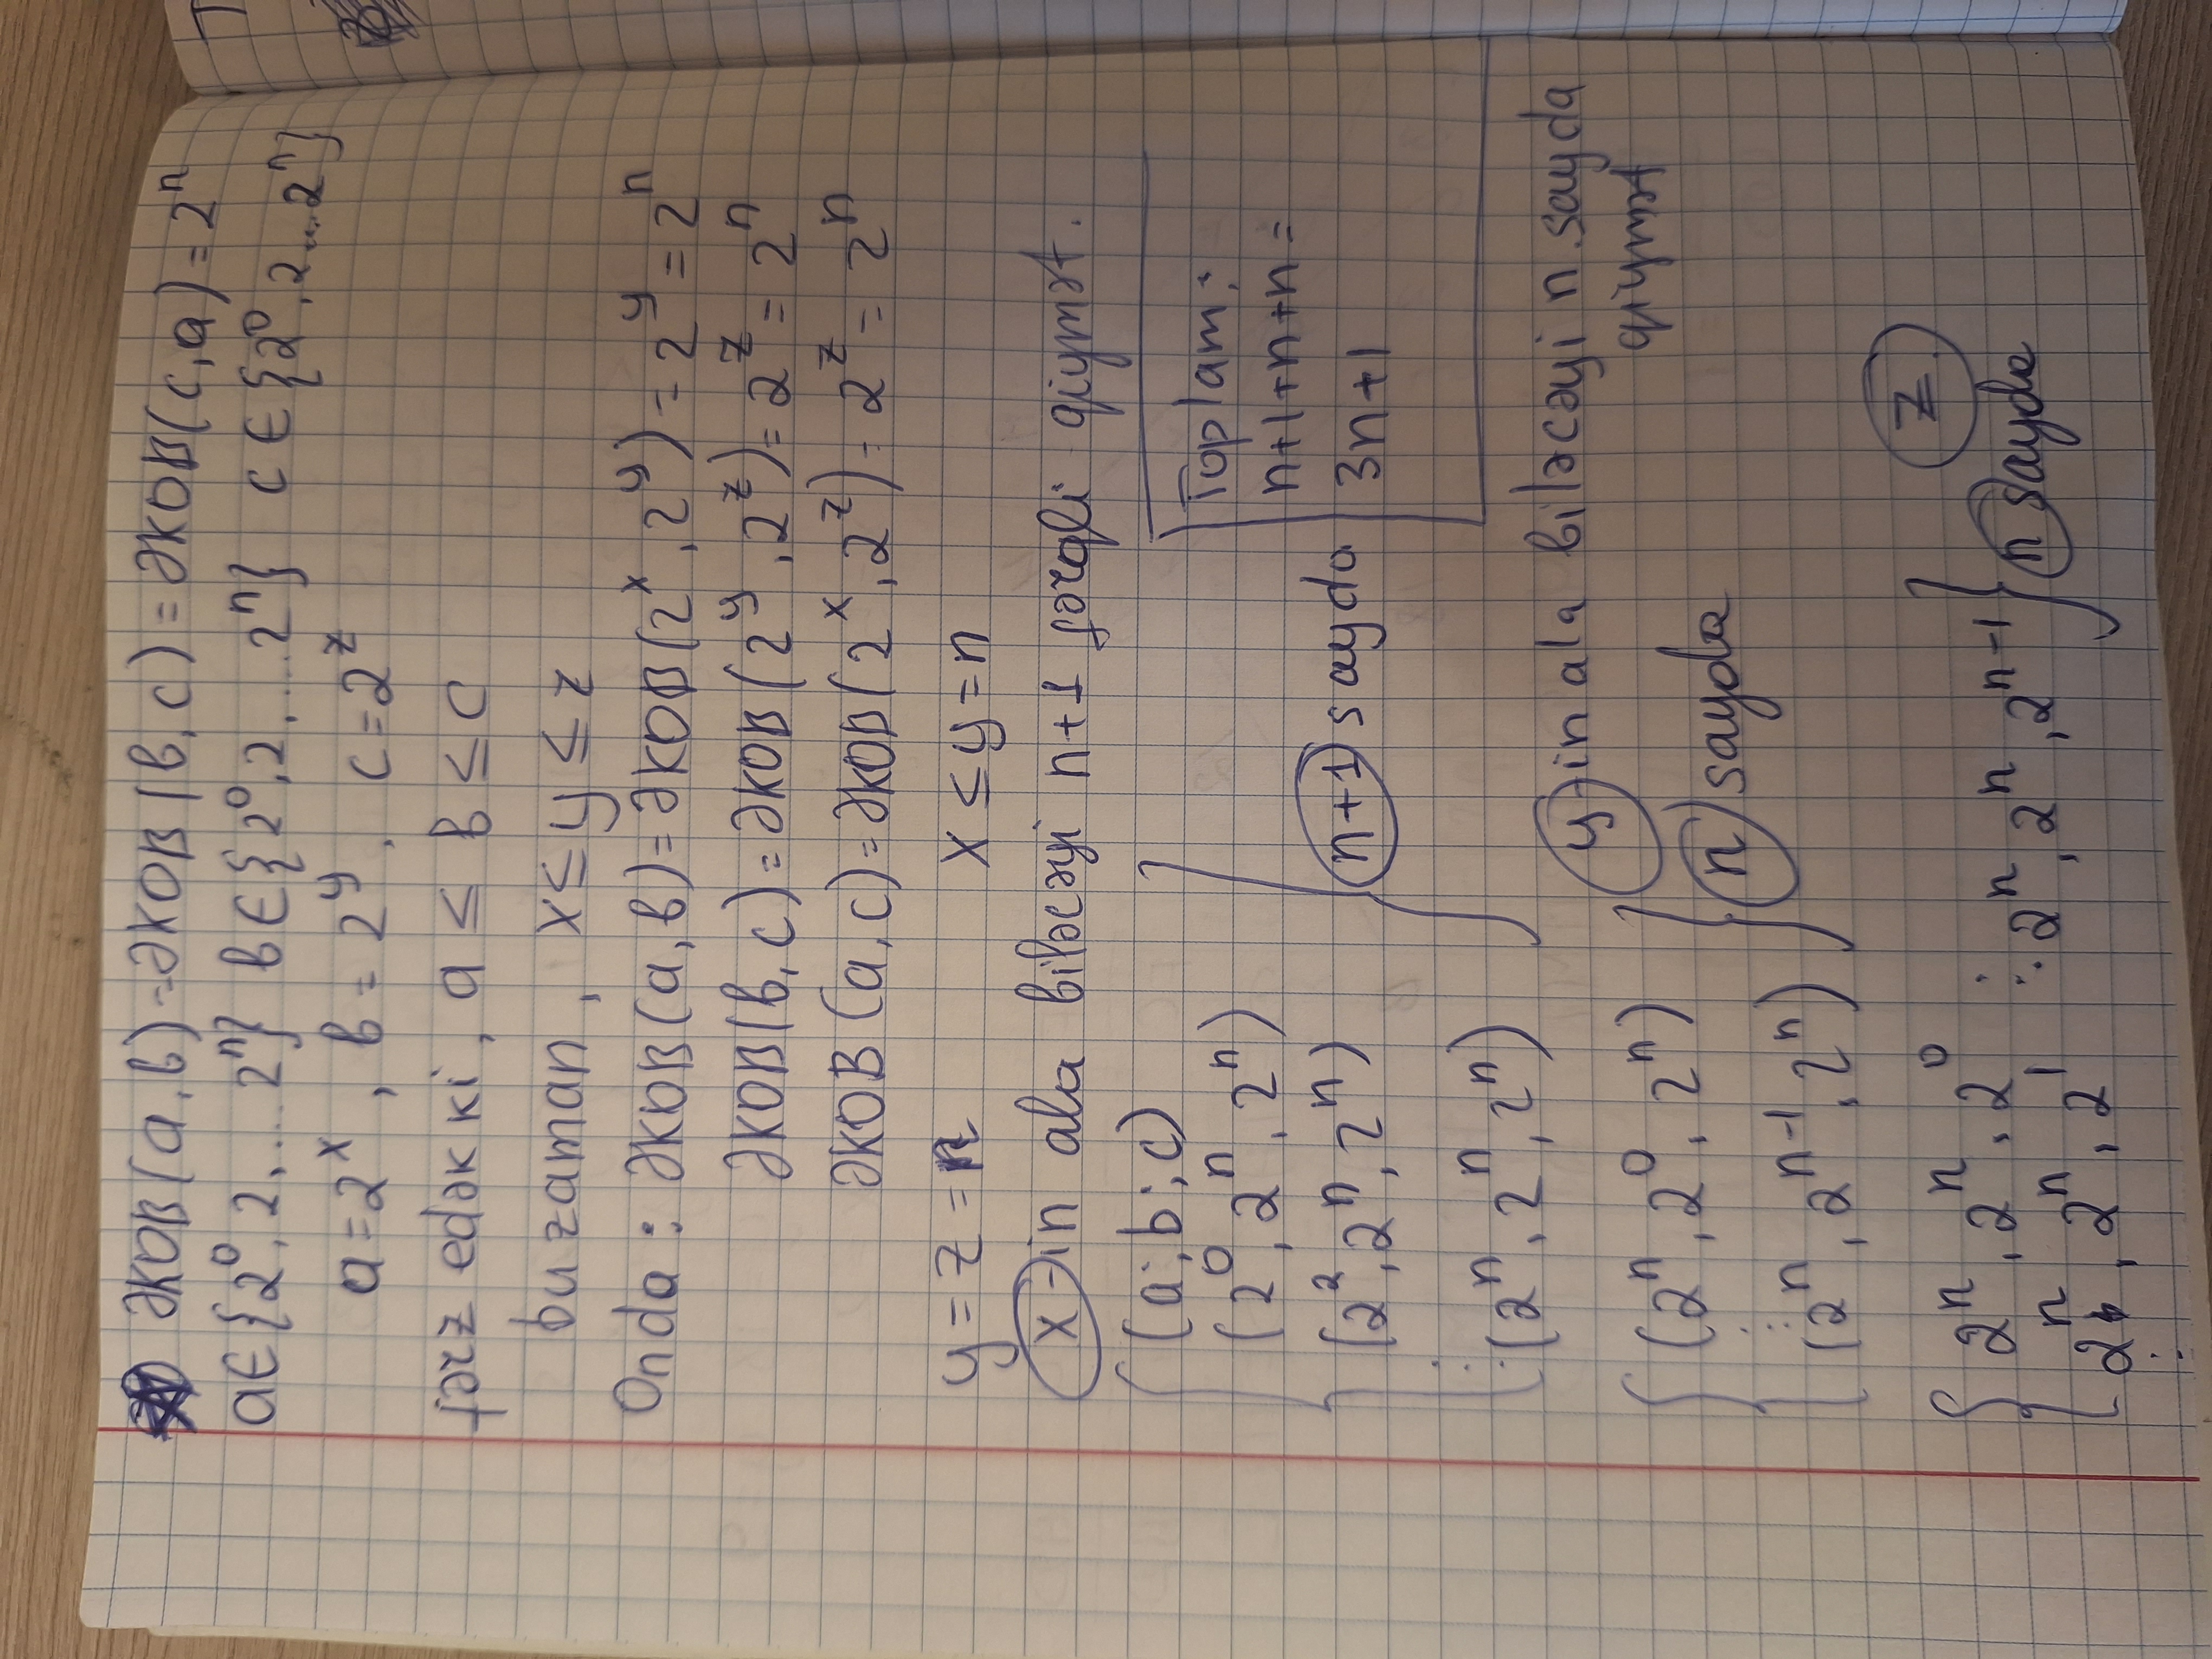 ƏKOB(a,b)=ƏKOB(b,c)=ƏKOB(c,a)=2ⁿ
a∈{2⁰,2,....2ⁿ} b∈{2⁰,2,...2ⁿ} c∈{2⁰,2...2ⁿ}
a=2ˣ, b=2ʸ, c=2ᶻ
fərz edək ki, a ≤ b ≤ c
bu zaman, x≤y≤z
Onda: ƏKOB(a,b)=ƏKOB(2ˣ,2ʸ)=2ʸ=2ⁿ
ƏKOB(b,c)=ƏKOB(2ʸ,2ᶻ)=2ᶻ=2ⁿ
ƏKOB(a,c)=ƏKOB(2ˣ,2ᶻ)=2ᶻ=2ⁿ
y=z=n x≤y=n
x-in ala biləcəyi n+1 fərqli qiymət.
(a;b;c)
(2⁰,2ⁿ,2ⁿ)
(2²,2ⁿ,2ⁿ)
⋮
(2ⁿ,2ⁿ,2ⁿ)
n+1 sayda
Toplam:
n+1+n+n=
3n+1
y-in ala biləcəyi n sayda
qiymət
(2ⁿ,2⁰,2ⁿ)
⋮
(2ⁿ,2ⁿ⁻¹,2ⁿ)
n sayda
z
2ⁿ,2ⁿ,2⁰
2ⁿ,2ⁿ,2¹
⋮
⋮ 2ⁿ,2ⁿ,2ⁿ⁻¹
n sayda